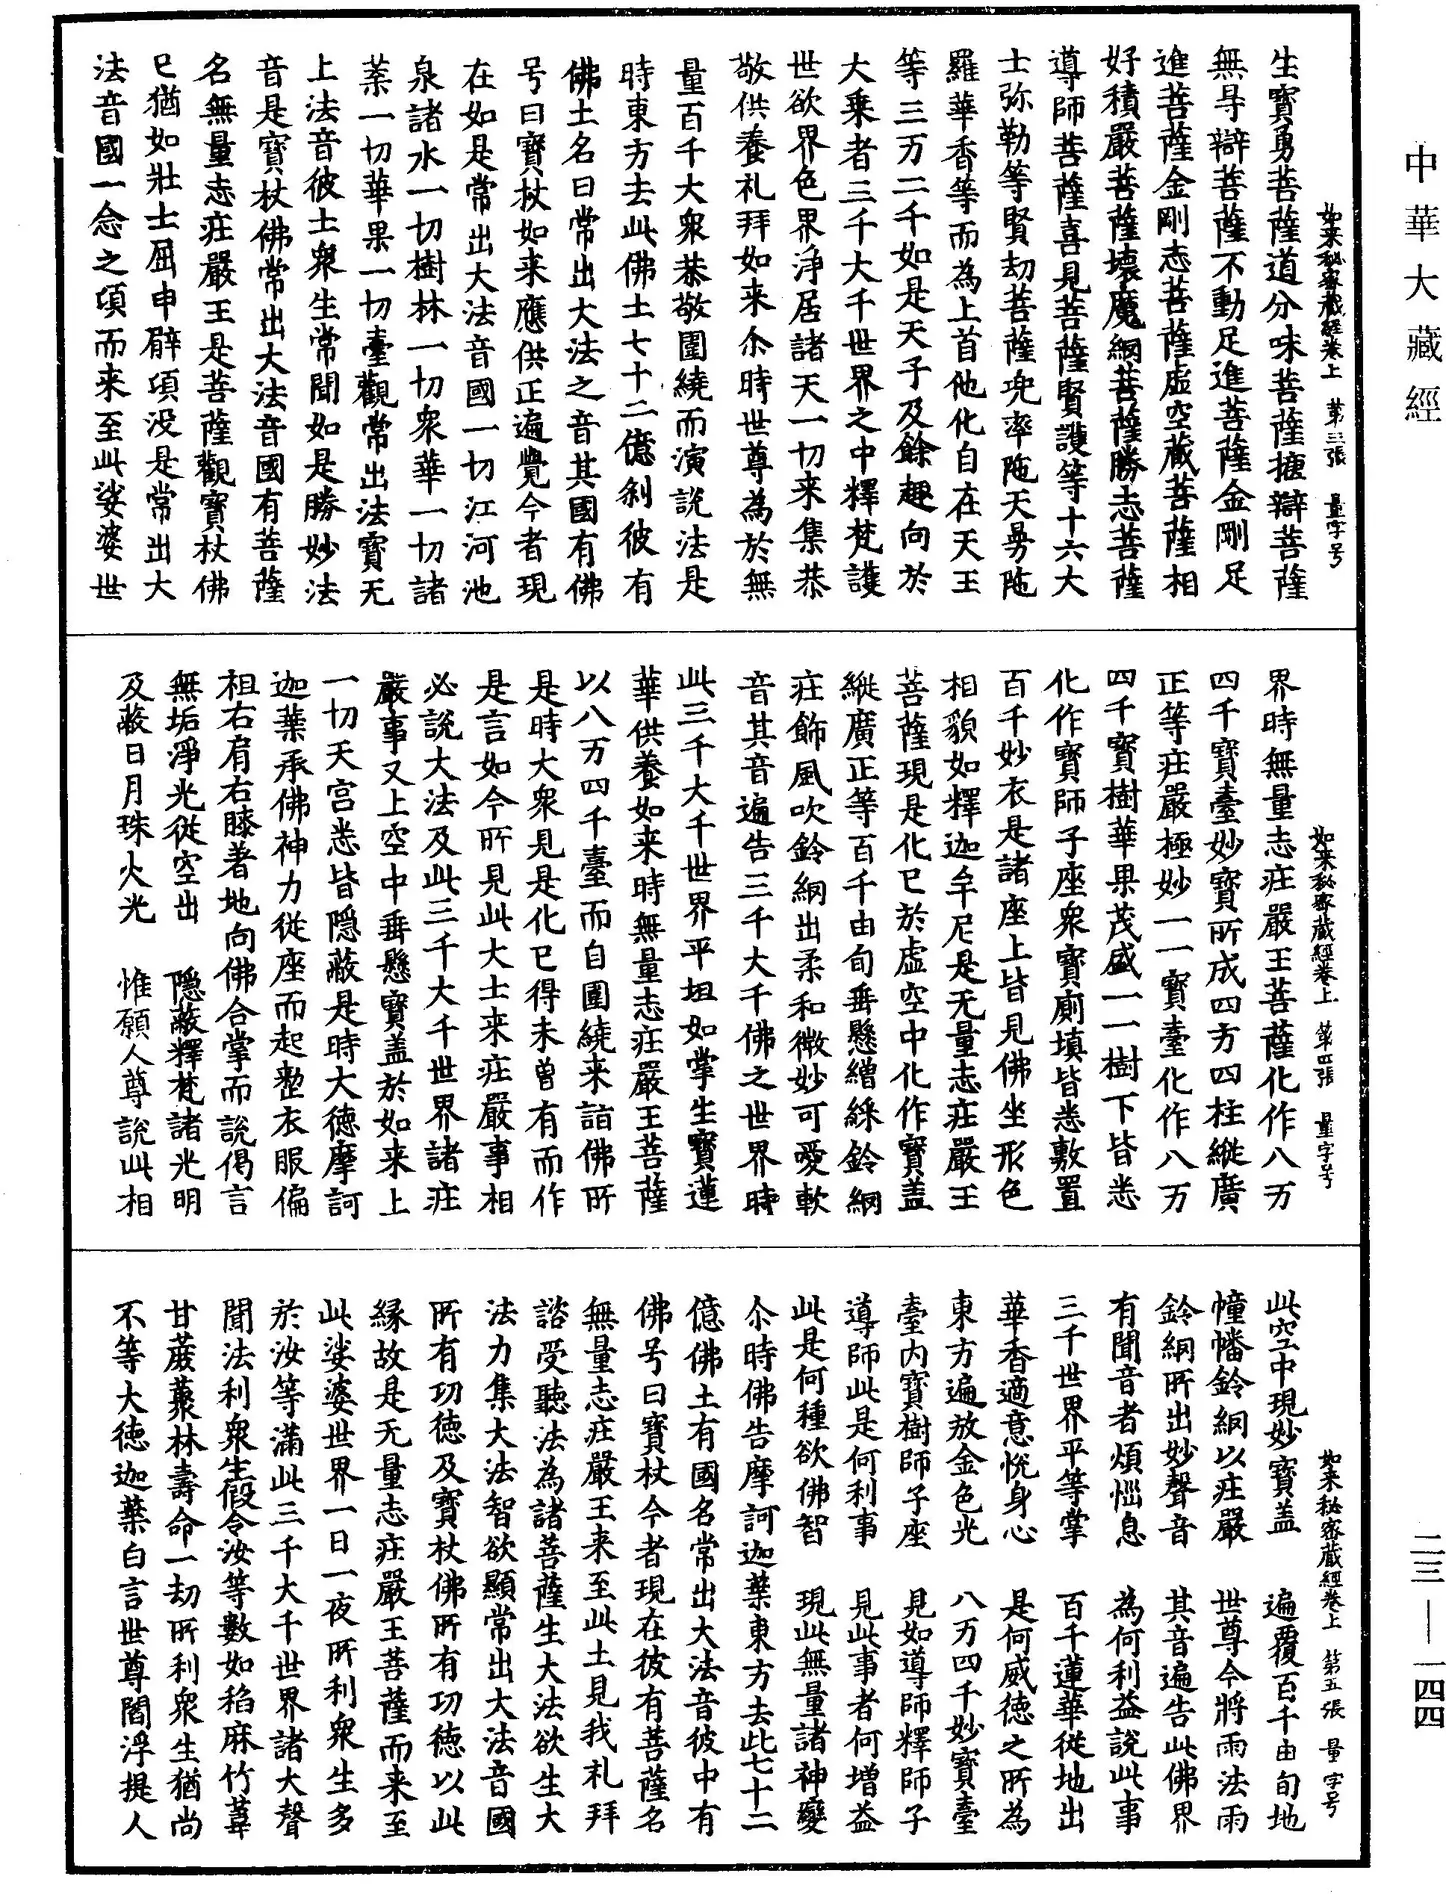 中華大藏經
如来秘密藏經卷上 第三張 量字号
生寶勇菩薩道分味菩薩捷辯菩薩
無㝵辯菩薩不動足進菩薩金剛足
進菩薩金剛志菩薩虛空藏菩薩相
好積嚴菩薩壞魔網菩薩勝志菩薩
導師菩薩喜見菩薩賢護等十六大
士弥勒等賢劫菩薩兜率陁天㬅陁
羅華香等而為上首他化自在天王
等三万二千如是天子及餘趣向於
大乗者三千大千世界之中釋梵護
世欲界色界淨居諸天一切来集恭
敬供養礼拜如来尒時世尊為於無
量百千大衆恭敬圍繞而演說法是
時東方去此佛土七十二億刹彼有
佛土名曰常出大法之音其國有佛
号曰寶杖如来應供正遍覺今者現
在如是常出大法音國一切江河池
泉諸水一切樹林一切衆華一切諸
菓一切華果一切臺觀常出法寶无
上法音彼土衆生常聞如是勝妙法
音是寶杖佛常出大法音國有菩薩
名無量志莊嚴王是菩薩觀寶杖佛
已猶如壯士屈申臂項没是常出大
法音國一念之項而来至此娑婆世
如来秘密藏經卷上 第四張 量字号
界時無量志莊嚴王菩薩化作八万
四千寶臺妙寶所成四方四柱縱廣
正等莊嚴極妙一一寶臺化作八万
四千寶樹華果茂盛一一樹下皆悉
化作寶師子座衆寶廁填皆悉敷置
百千妙衣是諸座上皆見佛坐形色
相貌如釋迦牟尼是无量志莊嚴王
菩薩現是化已於虛空中化作寶盖
縱廣正等百千由旬垂懸繒綵鈴網
莊飾風吹鈴網出柔和微妙可愛軟
音其音遍告三千大千佛之世界時
此三千大千世界平坦如掌生寶蓮
華供養如来時無量志莊嚴王菩薩
以八万四千臺而自圍繞来詣佛所
是時大衆見是化已得未曾有而作
是言如今所見此大士来莊嚴事相
必說大法及此三千大千世界諸莊
嚴事又上空中垂懸寶盖於如来上
一切天宫悉皆隐蔽是時大德摩訶
迦葉承佛神力從座而起整衣服偏
袒右肩右膝著地向佛合掌而說偈言
無垢淨光從空出 隐蔽釋梵諸光明
及蔽日月珠火光 惟願人尊說此相
如来秘密藏經卷上 第五張 量字号
此空中現妙寶盖 遍覆百千由旬地
幢幡鈴網以莊嚴 世尊今將雨法雨
鈴網所出妙聲音 其音遍告此佛界
有聞音者煩惱息 為何利益說此事
三千世界平等掌 百千蓮華從地出
華香適意悅身心 是何威德之所為
東方遍放金色光 八万四千妙寶臺
臺内寶樹師子座 見如導師釋師子
導師此是何利事 見此事者何增益
此是何種欲佛智 現此無量諸神變
尒時佛告摩訶迦葉東方去此七十二
億佛土有國名常出大法音彼中有
佛号曰寶杖今者現在彼有菩薩名
無量志莊嚴王来至此土見我礼拜
諮受聽法為諸菩薩生大法欲生大
法力集大法智欲顯常出大法音國
所有功德及寶杖佛所有功德以此
緣故是无量志莊嚴王菩薩而来至
此娑婆世界一日一夜所利衆生多
於汝等滿此三千大千世界諸大聲
聞法利衆生假令汝等數如稻麻竹葦
甘蔗藂林壽命一劫所利衆生猶尚
不等大德迦葉白言世尊閻浮提人
二三—一四四